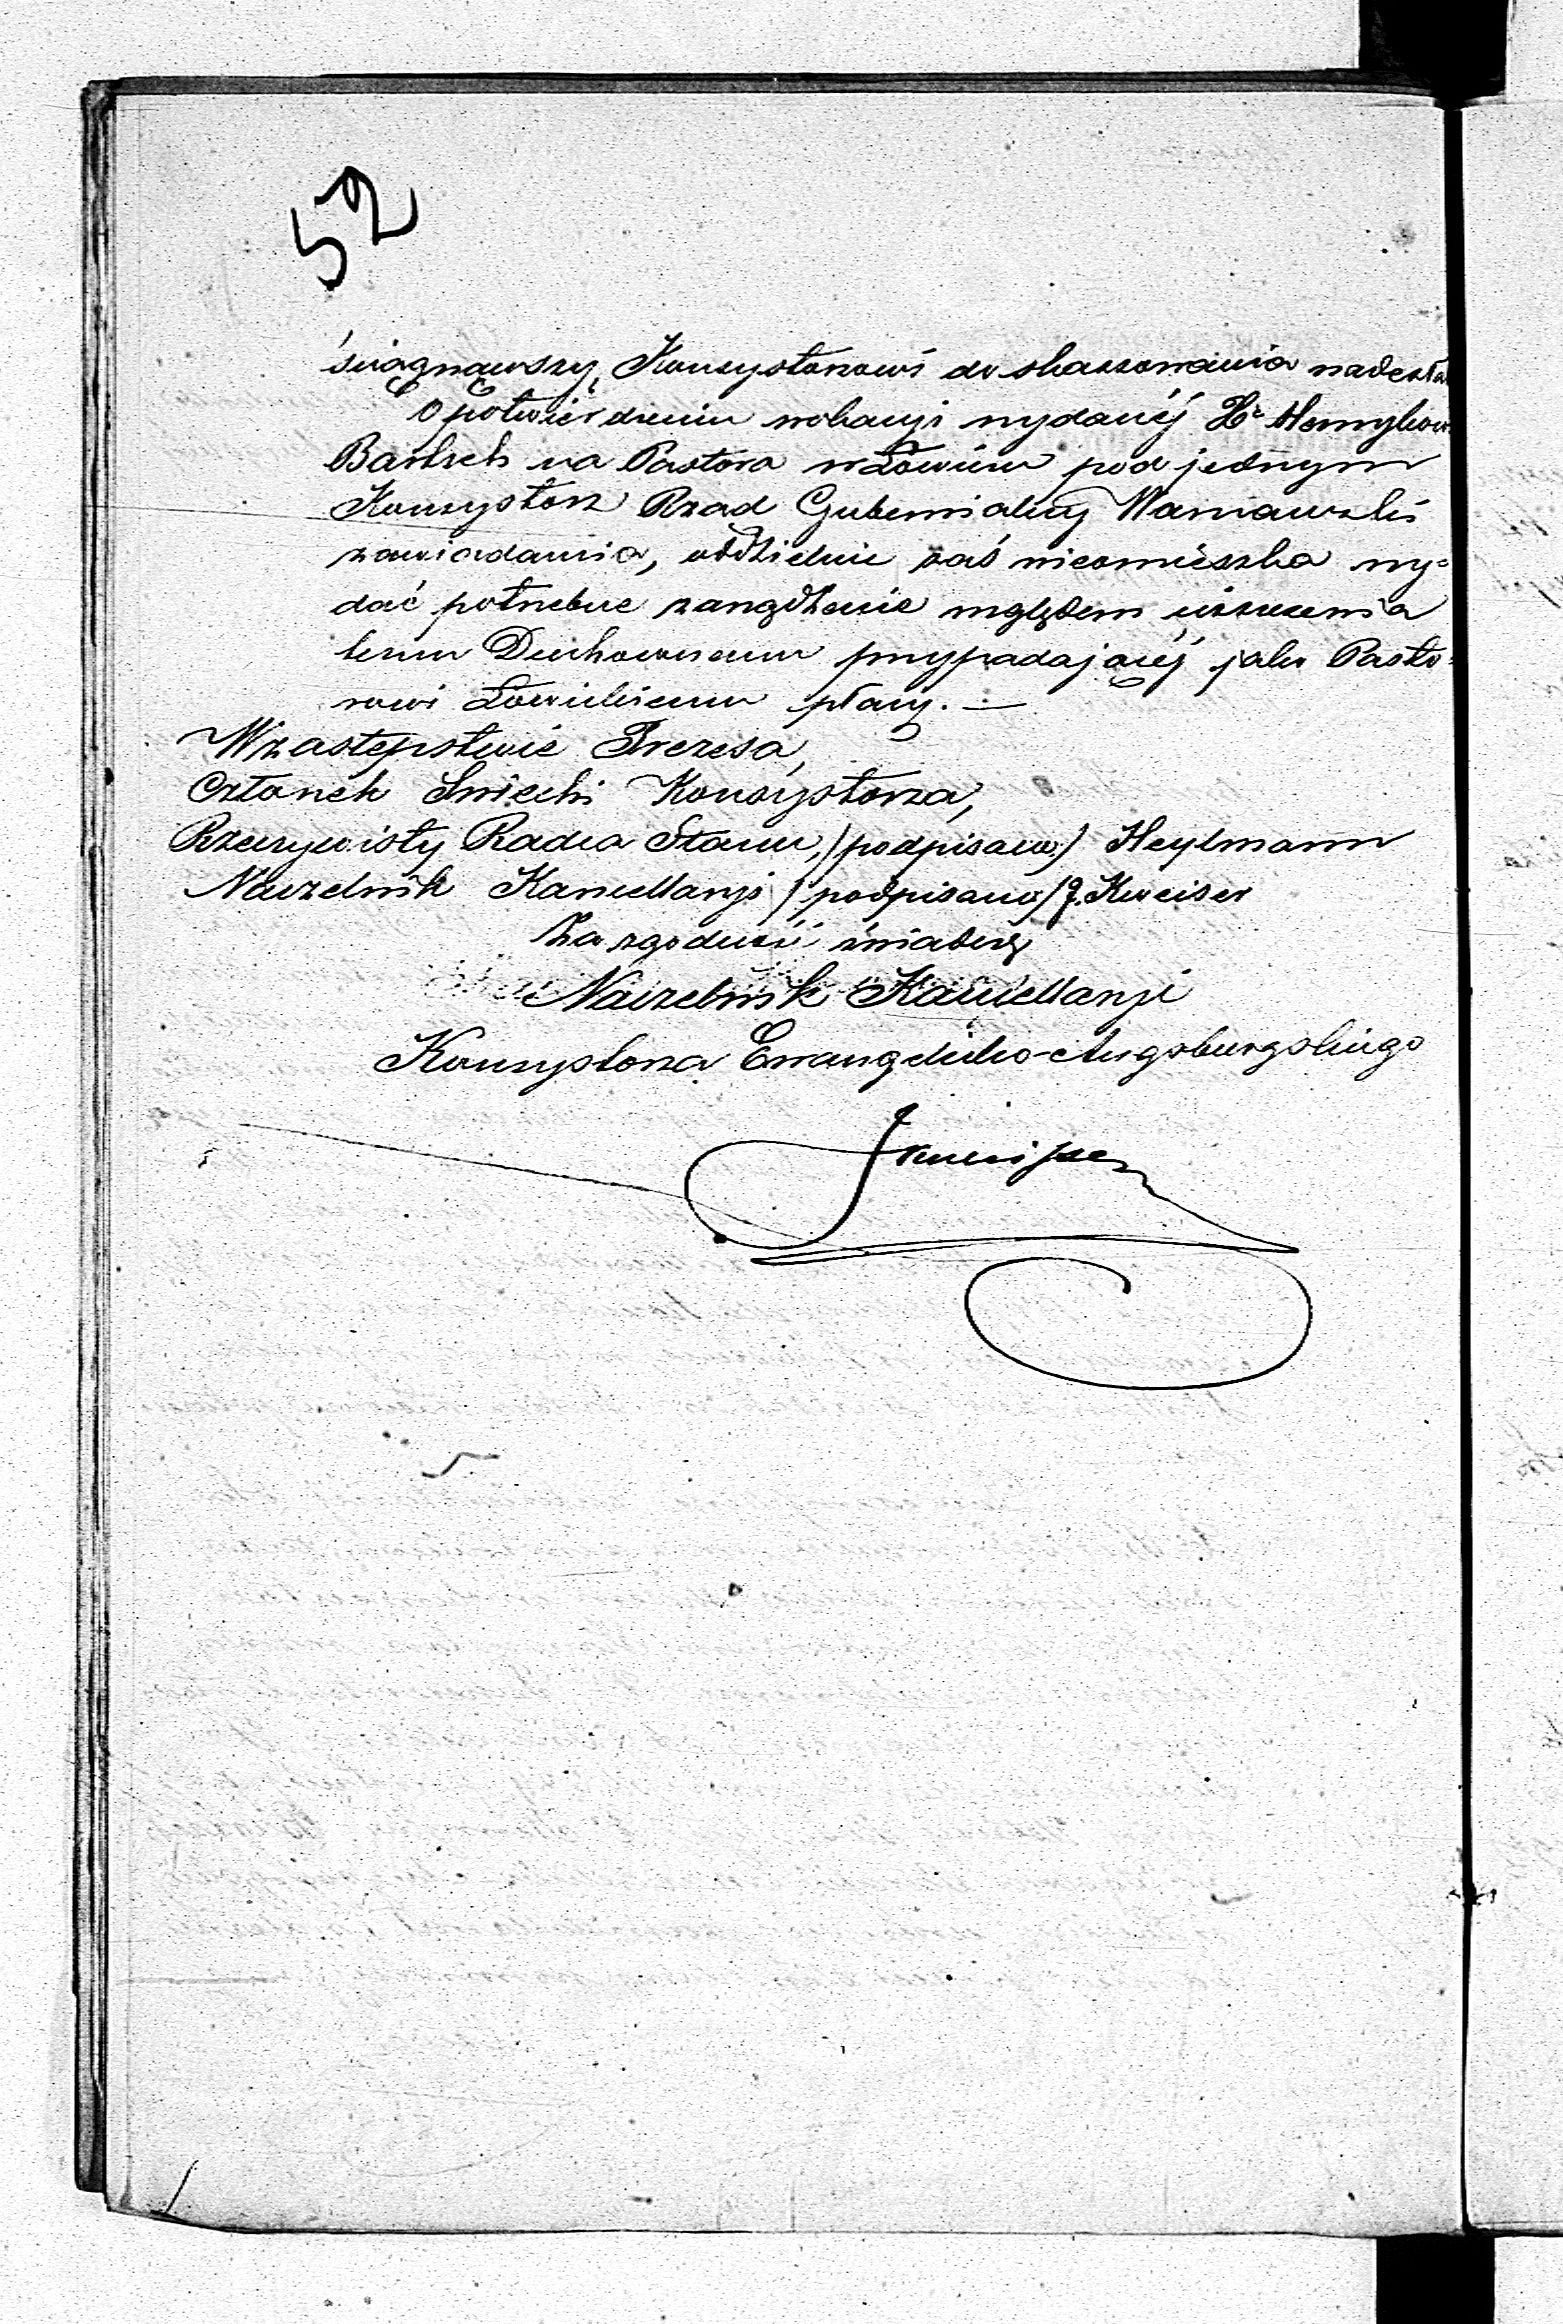 52
ściągnąwszy, Konsystorzowi do skassowania nadesła
O potwierdzeniu wokacyi wydanéj Xs Henrykowi
Bartsch na Pastora w Łowiczu pod jednym
Konsystorz Rząd Gubernialny Warszawski
zawiadamia, oddzielnie zaś nieomieszka wy=
dać potrzebne zarządzenie względem uiszczenia
temu Duchownemu przypadającéj jako Pasto=
rowi Łowickiemu płacy. —
W zastępstwie Prezesa,
Członek Świecki Konsystorza,
Rzeczywisty Radca Stanu, /podpisano/ Heylmann
Naczelnik Kancellaryi /podpisano/ J. Kweiser
Za zgodność świadczy
Naczelnik Kancellaryi
Konsystorza Ewangelicko-Augsburgskiego